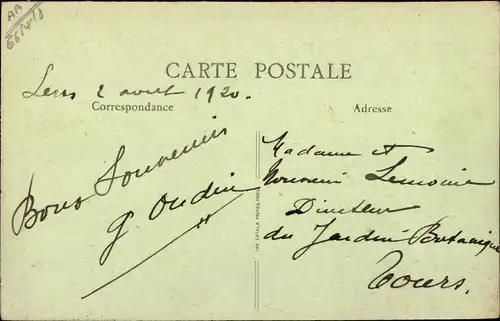 AA
CARTE POSTALE
Lens 2 avril 1920.
Correspondance
Adresse
Bons Souvenirs
G Oudin
IMP. CATALA FRÈRES, PARIS
Madame et
Monsieur Lemoine
Directeur
du Jardin Botanique
Tours.